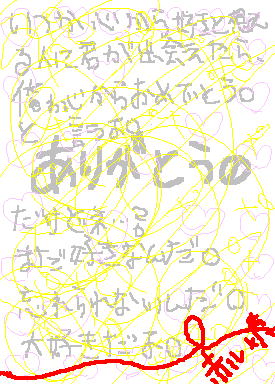 いつか心から好きと想え
る人に君が出会えたら、
俺が心からおめでとう。
と言うね
ありがとうの
だけどネ…?
まだ好きなんだ。
忘れられないんだ。
大好きだよ。
赤い糸